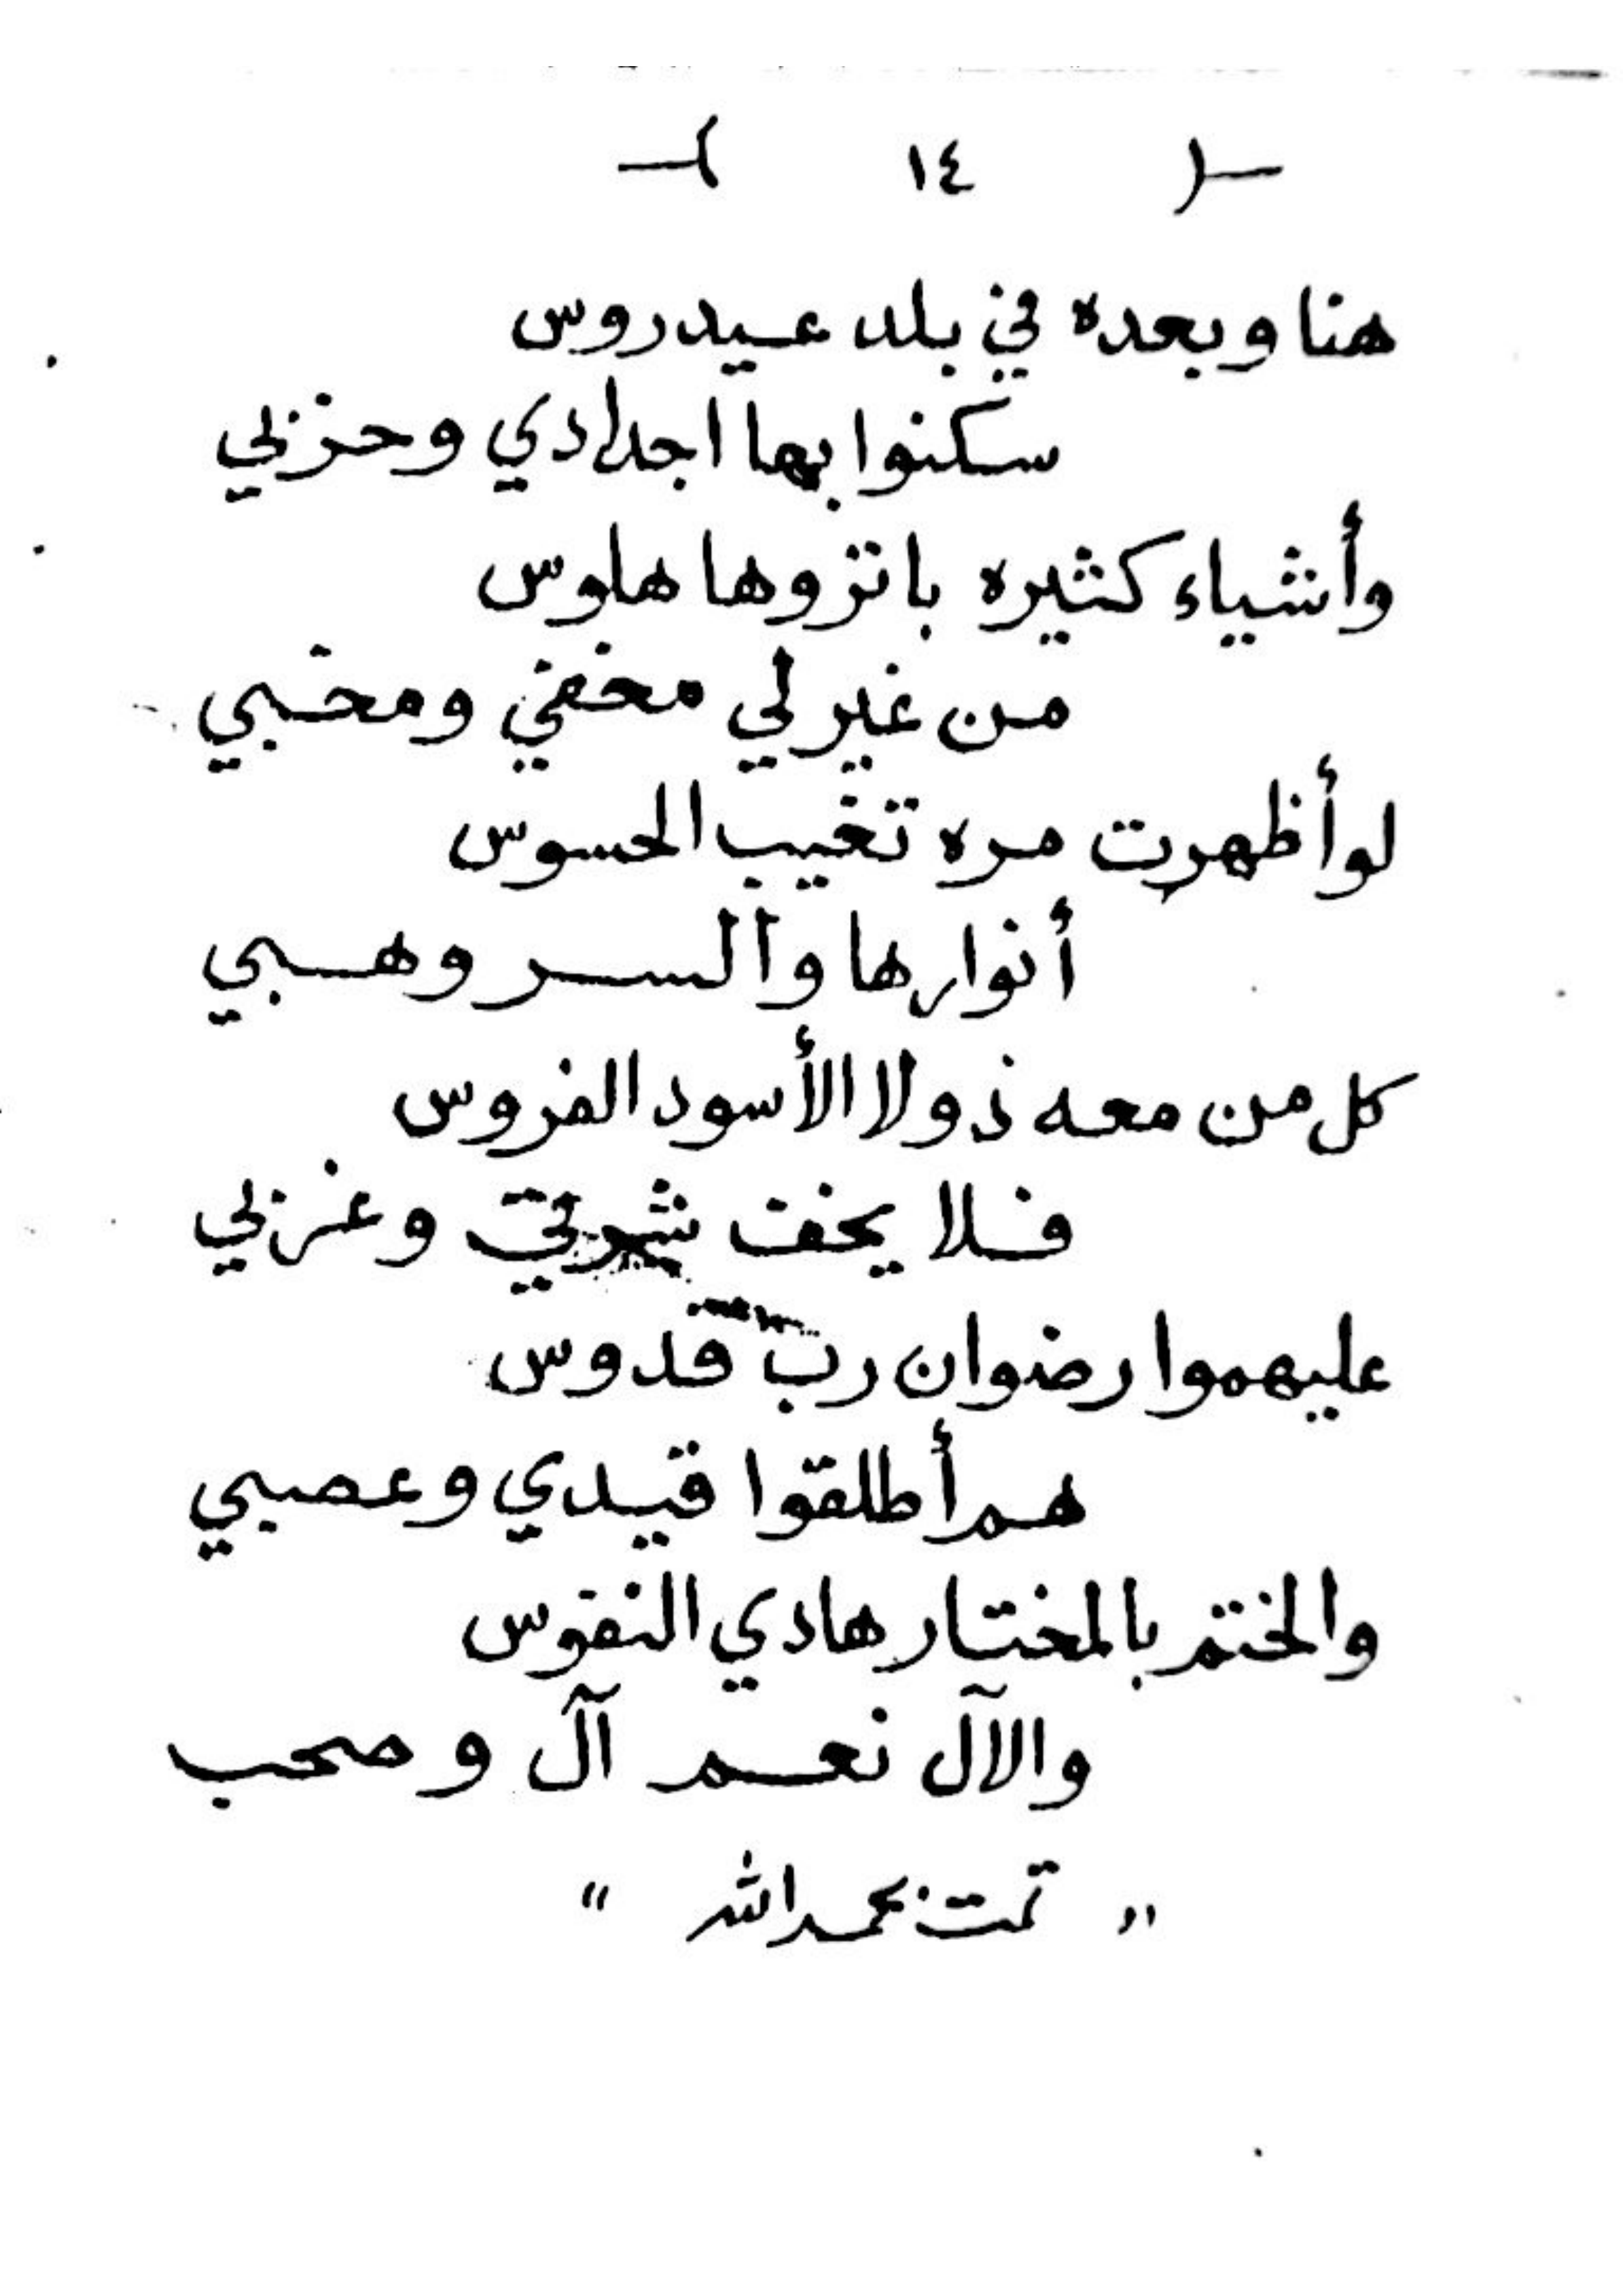 -( ١٤ )-
هنا وبعده في بلد عيدروس
سكنوا بها اجدادي وحزبي
وأشياء كثيره باتزوها هلوس
من غير لي مخفي ومخبي
لو أظهرت مره تغيب الحسوس
أنوارها والسر وهبي
كل من معه ذولا الأسود الفروس
فلا يخف شرقي وغربي
عليهموا رضوان رب قدوس
هم أطلقوا قيدي وعصبي
والختم بالمختار هادي النفوس
والآل نعم آل وصحب
" تمت بحمد الله "